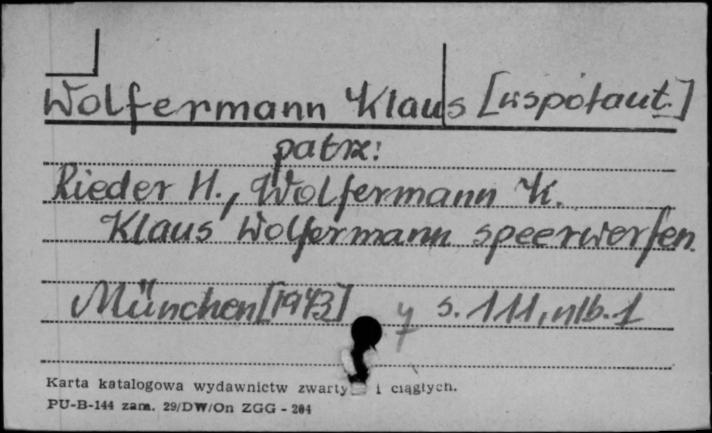 Wolfermann Klaus [współaut.]
patrz:
Rieder H., Wolfermann K.
Klaus Wolfermann speerwerfen.
München [1973] s. 111, nlb. 1
Karta katalogowa wydawnictw zwartych i ciągłych.
PU-B-144 zam. 29/DW/On ZGG - 204